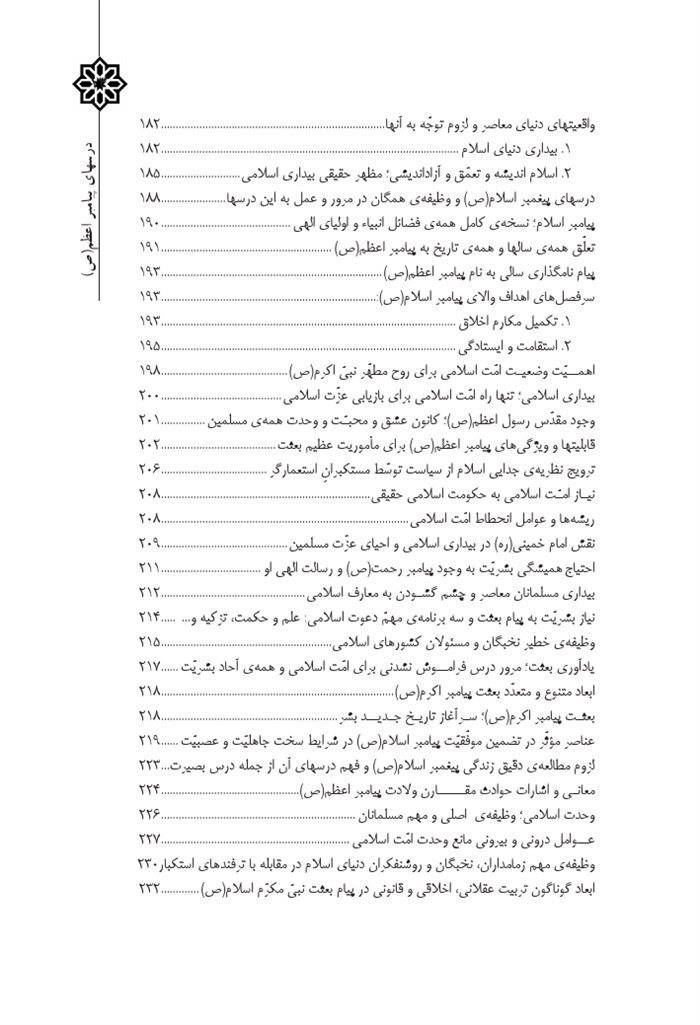 درسهای پیامبر اعظم(ص)
واقعیتهای دنیای معاصر و لزوم توجّه به آنها..........۱۸۲
۱. بیداری دنیای اسلام..........۱۸۲
۲. اسلام اندیشه و تعمّق و آزاداندیشی؛ مظهر حقیقی بیداری اسلامی..........۱۸۵
درسهای پیغمبر اسلام(ص) و وظیفه‌ی همگان در مرور و عمل به این درسها..........۱۸۸
پیامبر اسلام؛ نسخه‌ی کامل همه‌ی فضائل انبیاء و اولیای الهی..........۱۹۰
تعلّق همه‌ی سالها و همه‌ی تاریخ به پیامبر اعظم(ص)..........۱۹۱
پیام نامگذاری سالی به نام پیامبر اعظم(ص)..........۱۹۳
سرفصل‌های اهداف والای پیامبر اسلام(ص):..........۱۹۳
۱. تکمیل مکارم اخلاق..........۱۹۳
۲. استقامت و ایستادگی..........۱۹۵
اهمـــیّت وضعیـت امّت اسلامی برای روح مطهّر نبیّ اکرم(ص)..........۱۹۸
بیداری اسلامی؛ تنها راه امّت اسلامی برای بازیابی عزّت اسلامی..........۲۰۰
وجود مقدّس رسول اعظم(ص)؛ کانون عشق و محبّت و وحدت همه‌ی مسلمین..........۲۰۱
قابلیتها و ویژگی‌های پیامبر اعظم(ص) برای مأموریت عظیم بعثت..........۲۰۲
ترویج نظریه‌ی جدایی اسلام از سیاست توسّط مستکبرانِ استعمارگر..........۲۰۶
نیـاز امّـت اسلامی به حکومت اسلامی حقیقی..........۲۰۸
ریشه‌ها و عوامل انحطاط امّت اسلامی..........۲۰۸
نقش امام خمینی(ره) در بیداری اسلامی و احیای عزّت مسلمین..........۲۰۹
احتیاج همیشگی بشریّت به وجود پیامبر رحمت(ص) و رسالت الهی او..........۲۱۱
بیداری مسلمانان معاصر و چشم گشـودن به معارف اسلامی..........۲۱۲
نیاز بشریّت به پیام بعثت و سه برنامه‌ی مهمّ دعوت اسلامی: علم و حکمت، تزکیه و... .....۲۱۴
وظیفه‌ی خطیر نخبگان و مسئولان کشورهای اسلامی..........۲۱۵
یادآوری بعثت؛ مرور درس فرامـــوش نشدنی برای امّت اسلامی و همه‌ی آحاد بشریّت......۲۱۷
ابعاد متنوع و متعدّد بعثت پیامبر اکرم(ص)..........۲۱۸
بعثـت پیامبر اکرم(ص)؛ سـرآغاز تاریـخ جـدیــد بشر..........۲۱۸
عناصر مؤثّر در تضمین موفّقیّت پیامبر اسلام(ص) در شرایط سخت جاهلیّت و عصبیّت......۲۱۹
لزوم مطالعه‌ی دقیق زندگی پیغمبر اسلام(ص) و فهم درسهای آن از جمله درس بصیرت...۲۲۳
معانـی و اشارات حوادث مقـــــارن ولادت پیامبر اعظم(ص)..........۲۲۴
وحدت اسلامی؛ وظیفه‌ی اصلی و مهم مسلمانان..........۲۲۶
عــوامل درونی و بیرونی مانع وحدت امّت اسلامی..........۲۲۷
وظیفه‌ی مهم زمامداران، نخبگان و روشنفکران دنیای اسلام در مقابله با ترفندهای استکبار.۲۳۰
ابعاد گوناگون تربیت عقلانی، اخلاقی و قانونی در پیام بعثت نبیّ مکرّم اسلام(ص)..........۲۳۲